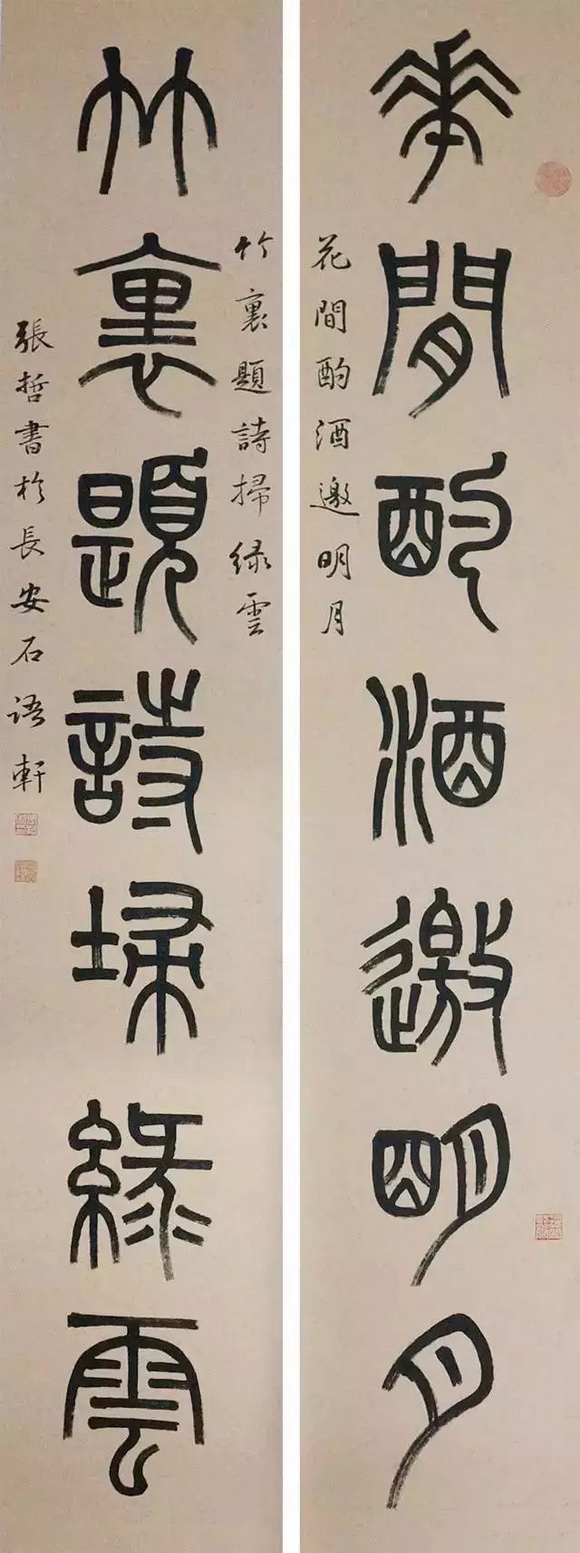 華閒酌酒邀明月
花間酌酒邀明月
竹裏題詩掃綠雲
竹裏題詩掃緑雲
張哲書於長安石語軒